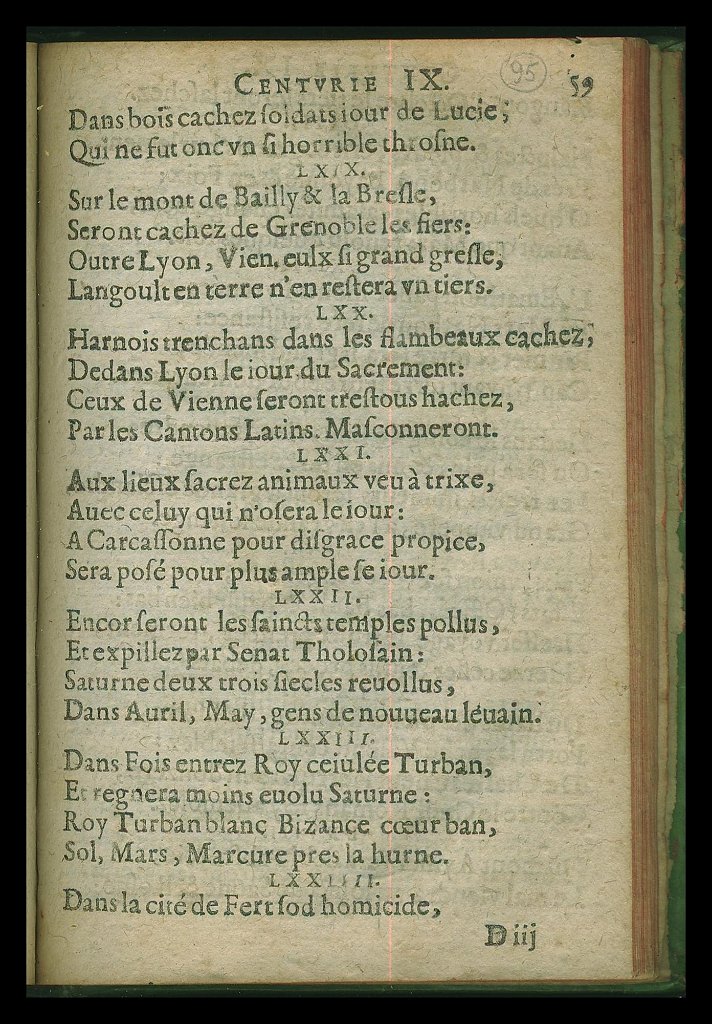 CENTVRIE IX. 95 59
Dans bois cachez ſoldats iour de Lucie;
Qui ne fut onc vn ſi horrible throſne.
LXIX.
Sur le mont de Bailly & la Breſle,
Seront cachez de Grenoble les fiers:
Outre Lyon, Vien. eulx ſi grand greſle,
Langoult en terre n'en reſtera vn tiers.
LXX.
Harnois trenchans dans les flambeaux cachez,
Dedans Lyon le iour du Sacrement:
Ceux de Vienne ſeront treſtous hachez,
Par les Cantons Latins. Maſconneront.
LXXI.
Aux lieux ſacrez animaux veu à trixe,
Auec celuy qui n'oſera le iour:
A Carcaſſonne pour diſgrace propice,
Sera poſé pour plus ample ſe iour.
LXXII.
Encor ſeront les ſaincts temples pollus,
Et expillez par Senat Tholoſain:
Saturne deux trois ſiecles reuollus,
Dans Auril, May, gens de nouueau léuain.
LXXIII.
Dans Fois entrez Roy ceiulée Turban,
Et regnera moins euolu Saturne:
Roy Turban blanc Bizance cœur ban,
Sol, Mars, Marcure pres la hurne.
LXXIIII.
Dans la cité de Fertſod homicide,
D iij